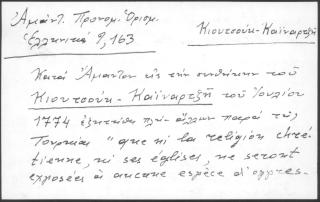 Ἀμάντ. Προνομ. Ὁρισμ.
Ἑλληνικά 9, 163
Κιουτσούκ-Καϊναρτζῆ
Κατά Ἄμαντον εἰς τήν συνθήκην τοῦ
Κιουτσούκ-Καϊναρτζῆ τοῦ Ἰουλίου
1774 ἐζητεῖτο πλήν ἄλλων παρά τῆς
Τουρκίας "que ni la religion chré-
tienne, ni ses églises, ne seront
exposées à aucune espèce d'oppres-